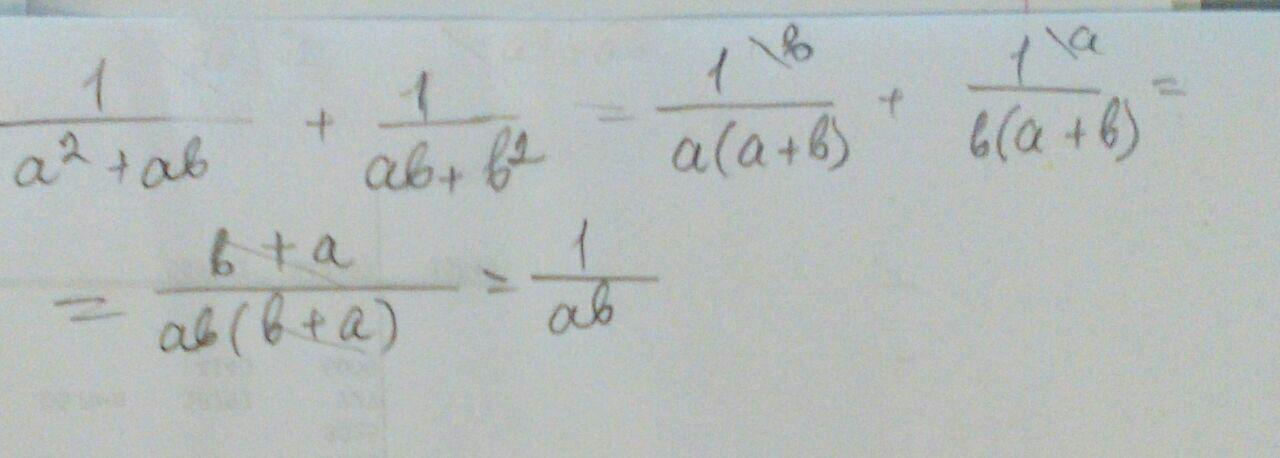 1/(a² + ab) + 1/(ab + b²) = 1\b/(a(a + b)) + 1\a/(b(a + b)) =
= (b + a)/(ab(b + a)) = 1/(ab)